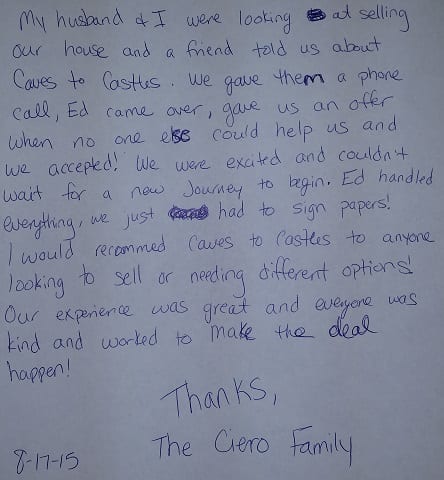 My husband & I were looking at selling
our house and a friend told us about
Caves to Castles. We gave them a phone
call, Ed came over, gave us an offer
when no one else could help us and
we accepted! We were excited and couldn't
wait for a new Journey to begin. Ed handled
everything, we just had to sign papers!
I would recommed Caves to Castles to anyone
looking to sell or needing different options!
Our experience was great and everyone was
kind and worked to make the deal
happen!
Thanks,
The Ciero Family
8-17-15